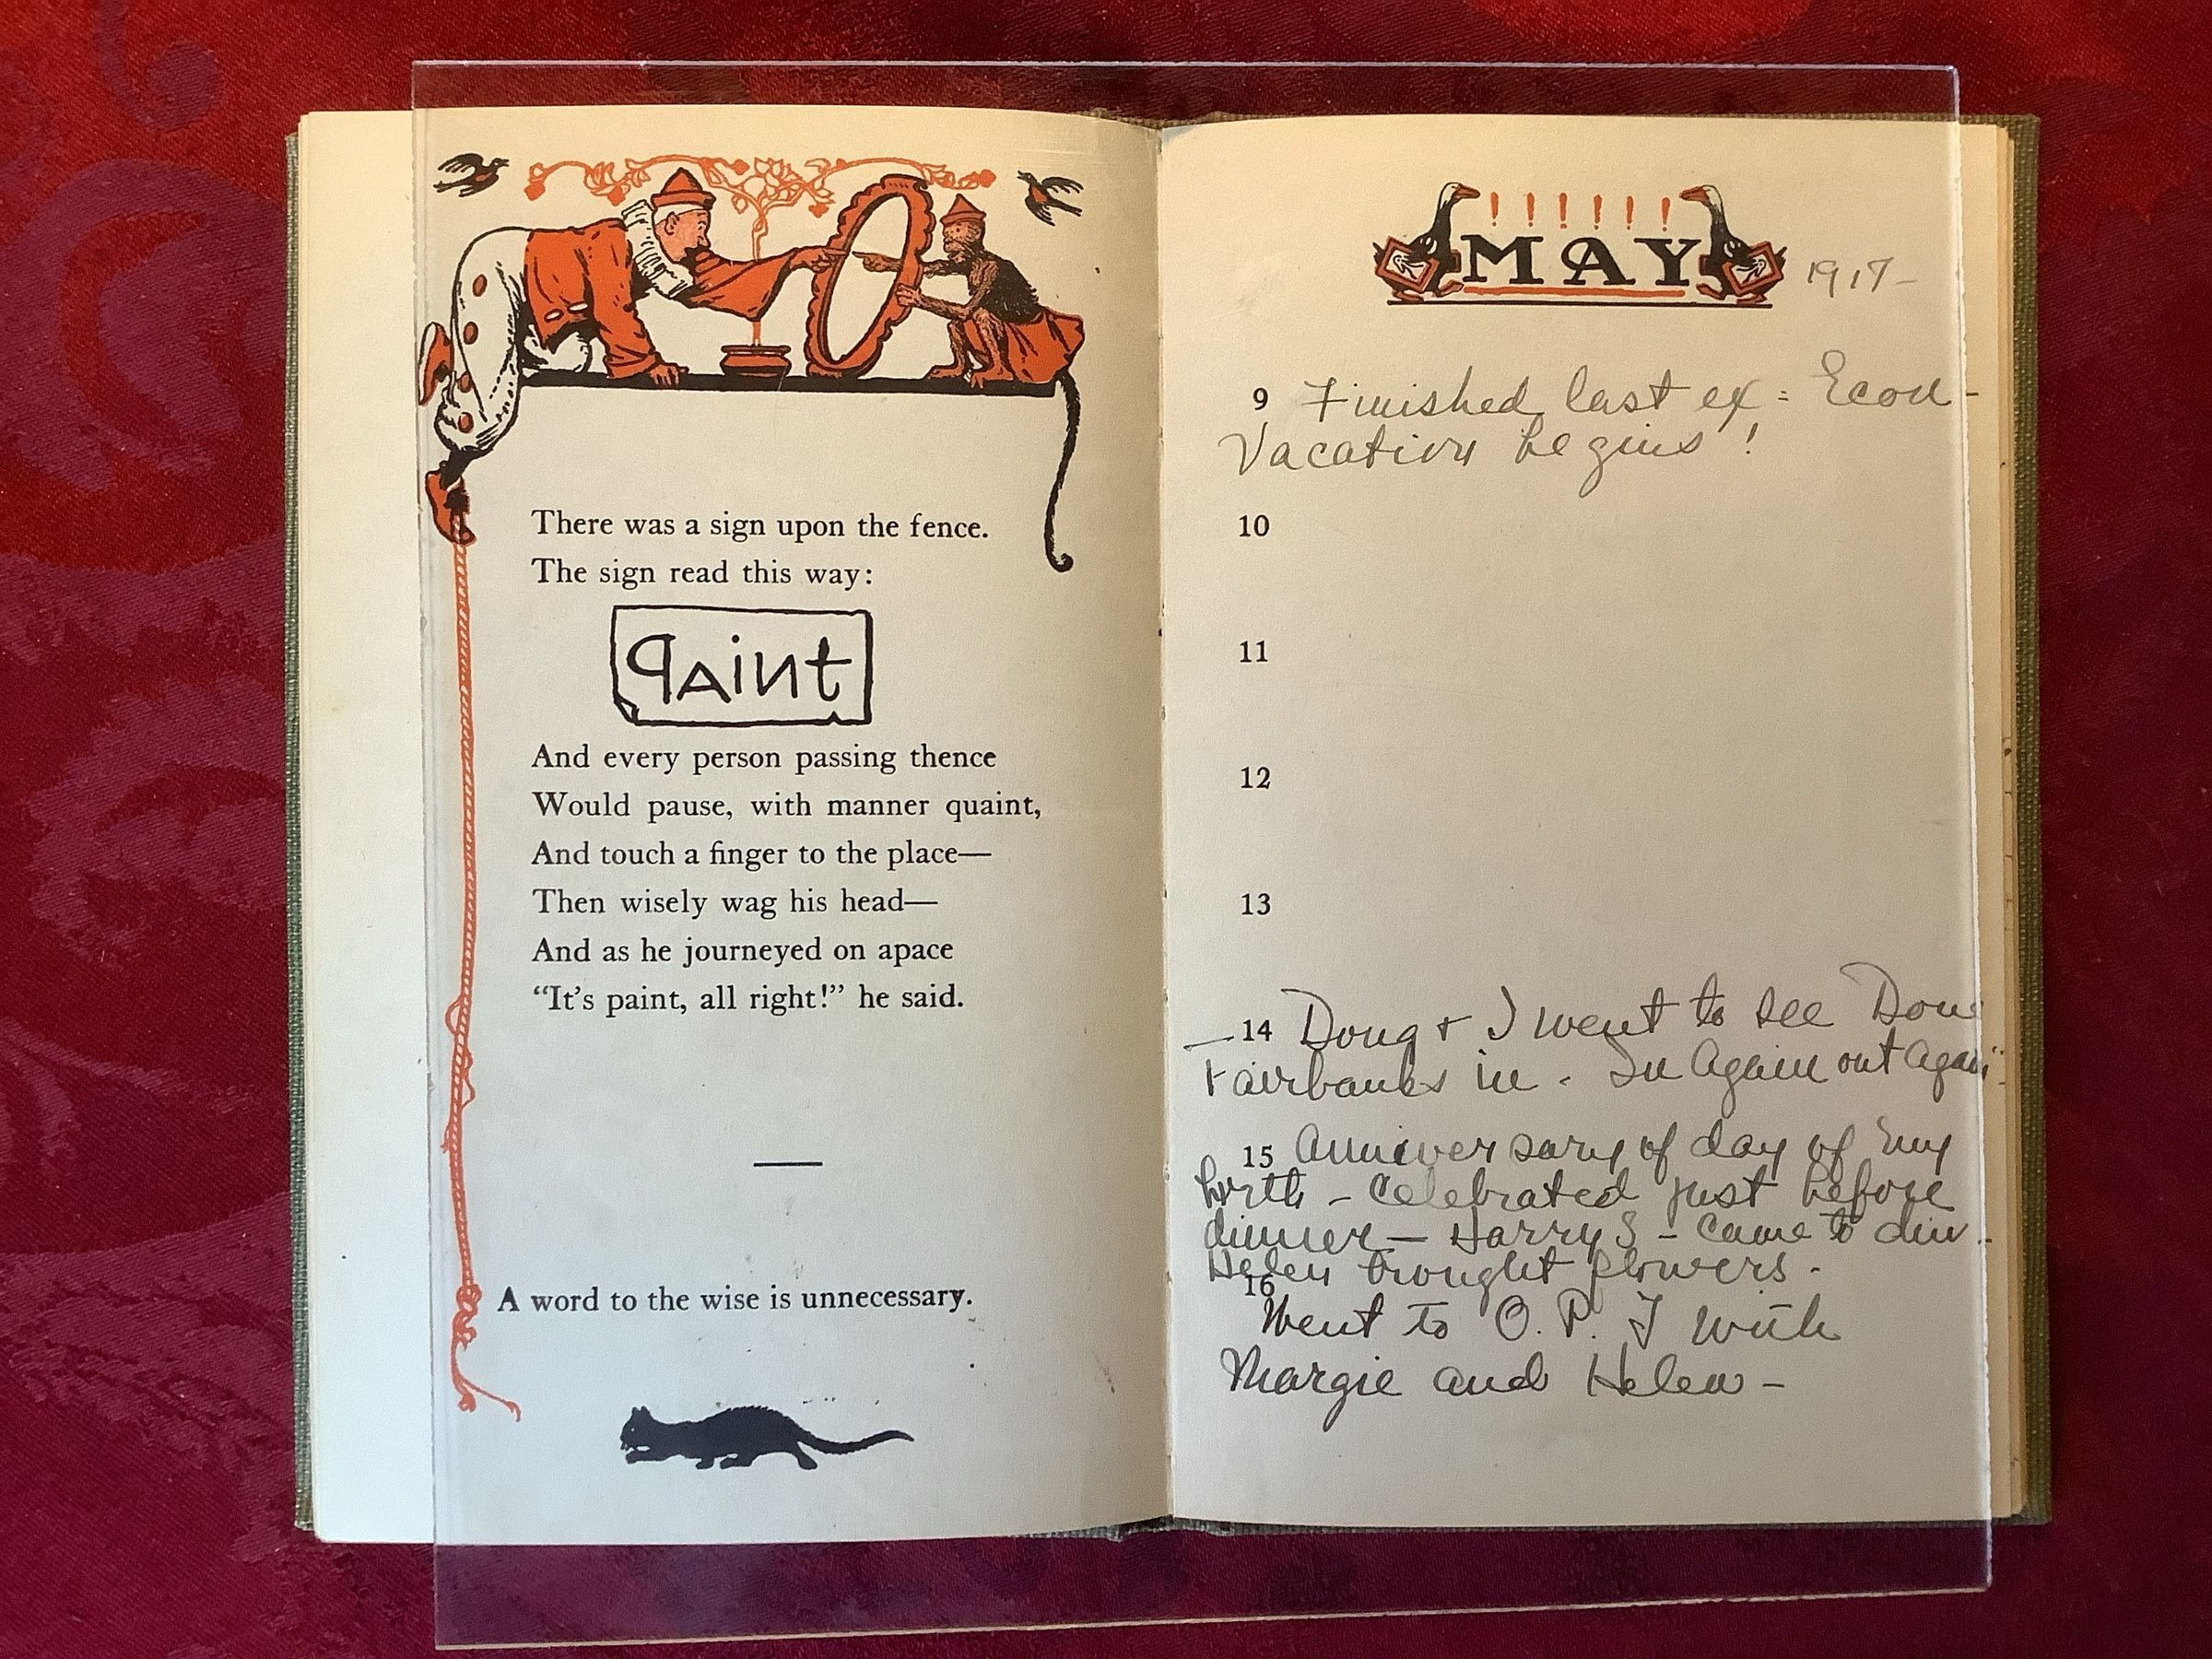 There was a sign upon the fence.
The sign read this way:
Paint
And every person passing thence
Would pause, with manner quaint,
And touch a finger to the place—
Then wisely wag his head—
And as he journeyed on apace
“It’s paint, all right!” he said.
A word to the wise is unnecessary.
! ! ! ! ! !
MAY 1917-
9 Finished last ex: Econ-
Vacation begins!
10
11
12
13
14 Doug + I went to see Doug
Fairbanks in - In Again out Again
15 Anniversary of day of my
birth - Celebrated just before
dinner - Harry S - came to din-
Helen brought flowers.
16
Went to O. P. J with
Margie and Helen -